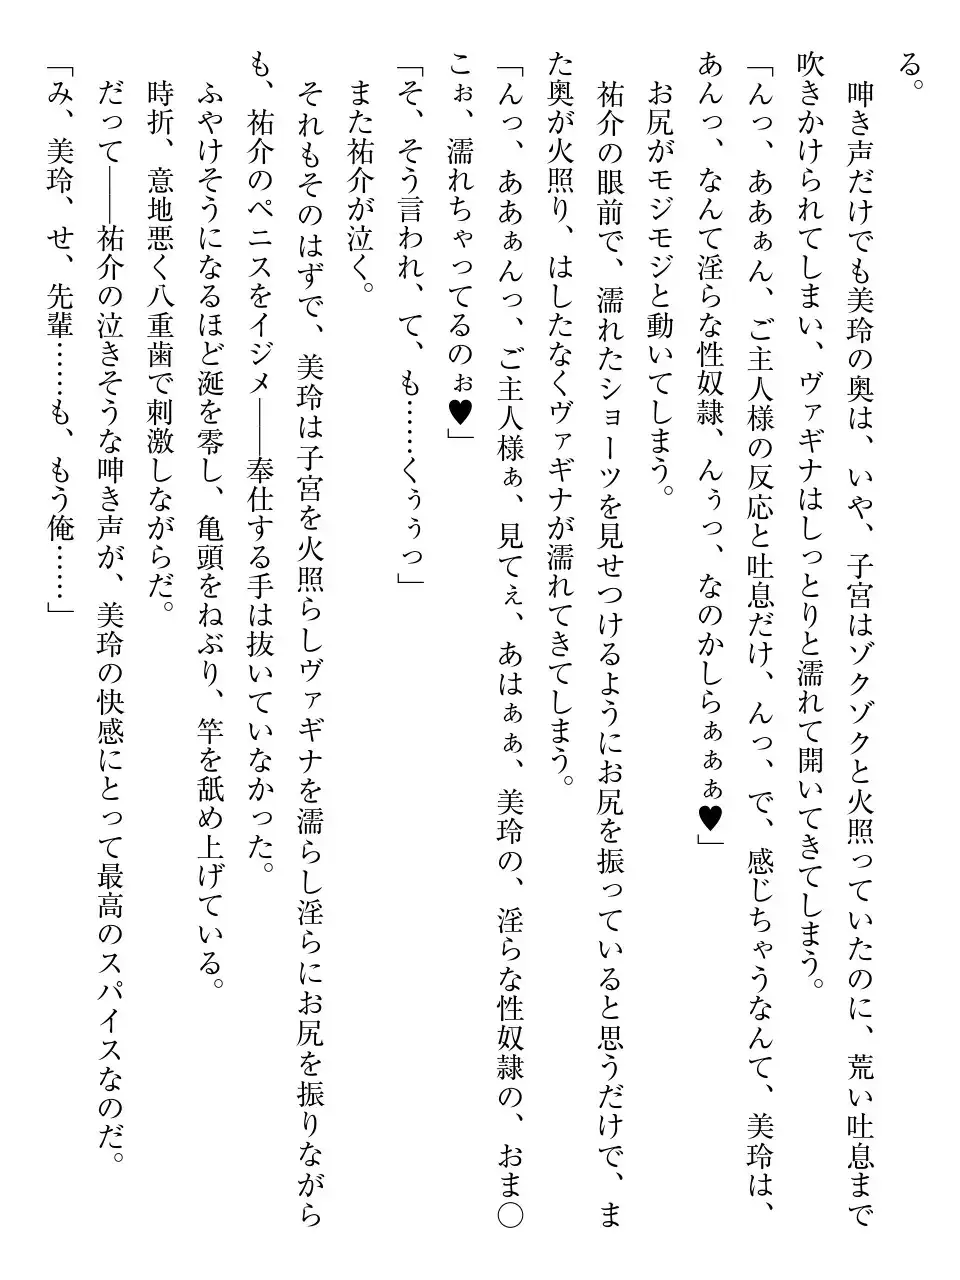 る。
　呻き声だけでも美玲の奥は、いや、子宮はゾクゾクと火照っていたのに、荒い吐息まで
吹きかけられてしまい、ヴァギナはしっとりと濡れて開いてきてしまう。
「んっ、ああぁん、ご主人様の反応と吐息だけ、んっ、で、感じちゃうなんて、美玲は、
あんっ、なんて淫らな性奴隷、んぅっ、なのかしらぁぁぁ♥」
　お尻がモジモジと動いてしまう。
　祐介の眼前で、濡れたショーツを見せつけるようにお尻を振っていると思うだけで、ま
た奥が火照り、はしたなくヴァギナが濡れてきてしまう。
「んっ、ああぁんっ、ご主人様ぁ、見てぇ、あはぁぁ、美玲の、淫らな性奴隷の、おま〇
こぉ、濡れちゃってるのぉ♥」
「そ、そう言われ、て、も……くぅぅっ」
　また祐介が泣く。
　それもそのはずで、美玲は子宮を火照らしヴァギナを濡らし淫らにお尻を振りながら
も、祐介のペニスをイジメ――奉仕する手は抜いていなかった。
　ふやけそうになるほど涎を零し、亀頭をねぶり、竿を舐め上げている。
　時折、意地悪く八重歯で刺激しながらだ。
　だって――祐介の泣きそうな呻き声が、美玲の快感にとって最高のスパイスなのだ。
「み、美玲、せ、先輩……も、もう俺……」